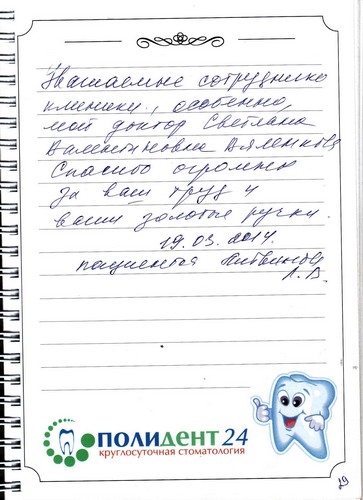 Уважаемые сотрудники
клиники, особенно,
мой доктор Светлана
Валентиновна
Спасибо огромное
за ваш труд и
ваши золотые ручки.
19.03.2014.
пациентка Литвинова
Л.В.
ПОЛИДЕНТ 24
круглосуточная стоматология
29